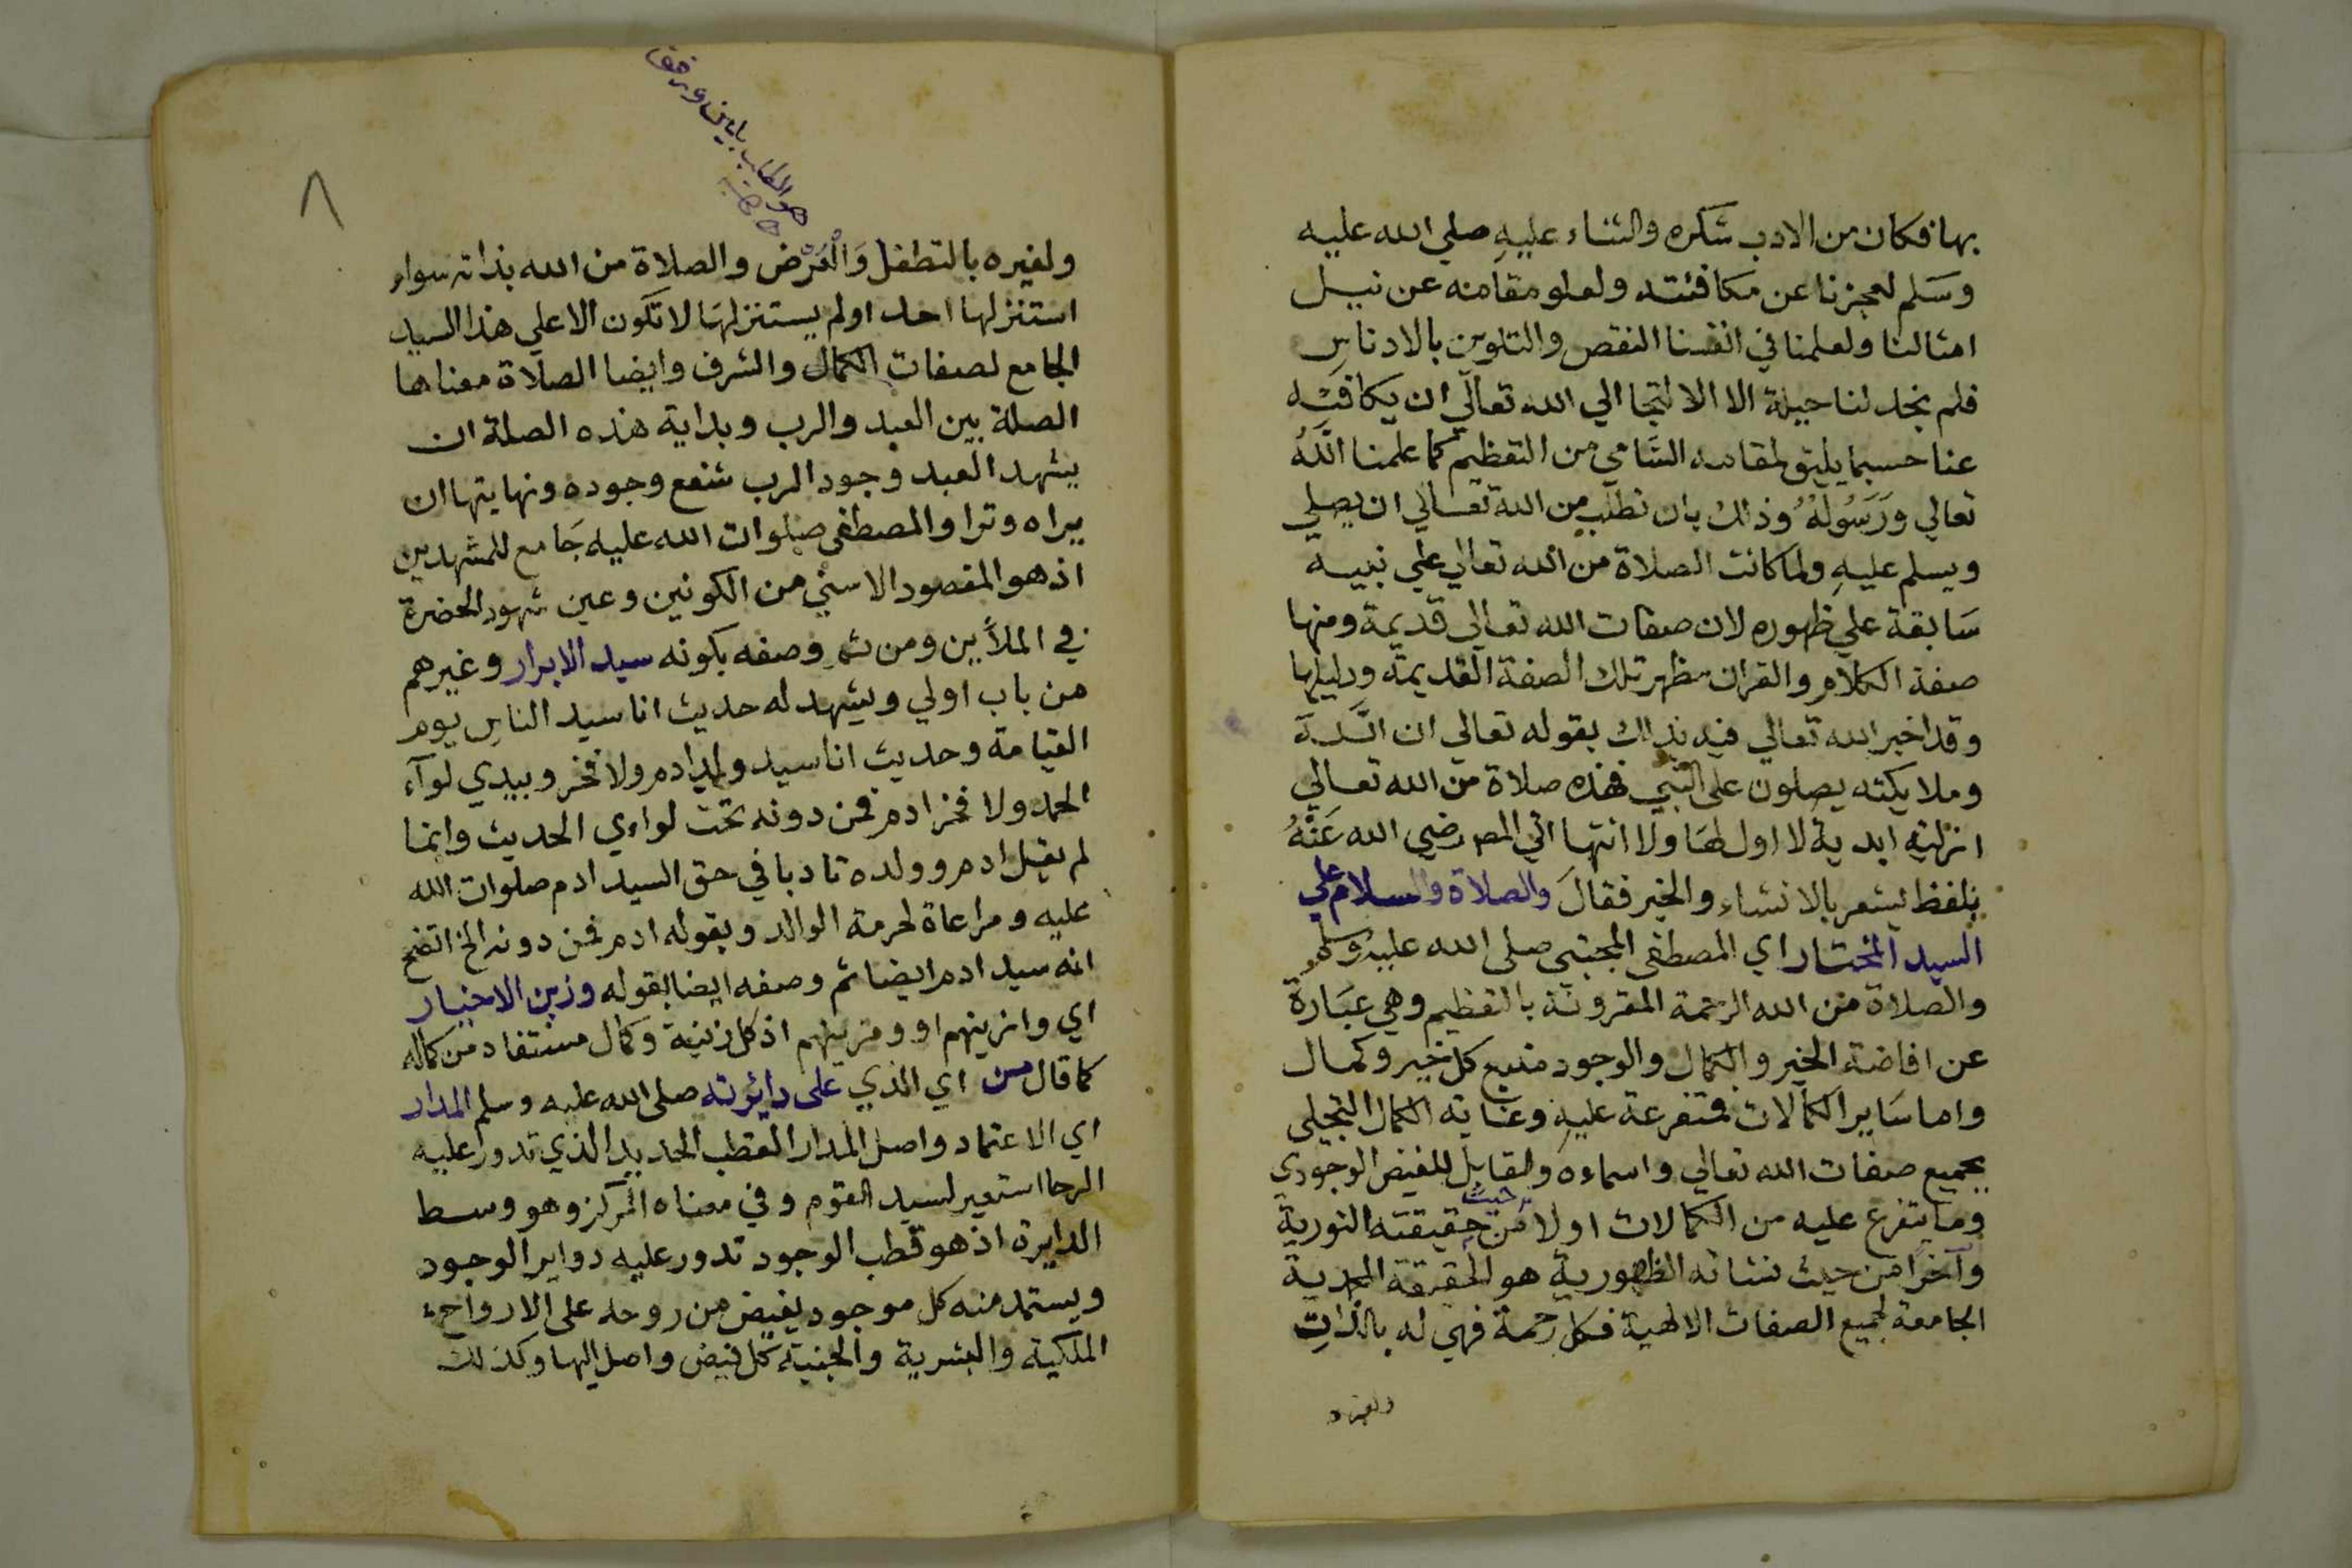 بها فكان من الادب شكره والثناء عليهِ صلي الله عليه
وسَلم لعجزنا عن مكافئته ولعلو مقامه عن نيل
امثالنا ولعلمنا في انفسنا النقص والتلوين بالادناس
فلم نجد لنا حيلة الا الالتجا الي الله تعالي ان يكافيه
عنا حسبما يليق لمقامه السَّامي من التعظيم كما علمنا اللّهُ
تعالي ورَسُولهُ وذلك بان نطلب من الله تعالي ان يصلي
ويسلم عليهِ ولما كانت الصلاة من الله تعالي علي نبيه
سَابقة علي ظهوره لان صفات الله تعالي قديمة ومنها
صفة الكلام والقران مظهر تلك الصفة القديمة ودليلها
وقد اخبر الله تعالي فيه بذلك بقوله تعالي ان اللّه
وملايكته يصلون علي النبي فهذه صلاة من الله تعالي
ازلية ابدية لا اول لهَا ولا انتها اتي المص رضي الله عَنْهُ
بلفظ يشعر بالانشاء والخبر فقالَ والصلاة والسلام علي
السيد المختار اي المصطفي المجتبي صلي الله عليه وسلم
والصلاة من الله الرحمة المقرونة بالتعظيم وهي عبَارة
عن افاضة الخير والكمال والوجود منبع كل خير وكمال
واما سَاير الكمالات فمتفرعة عليهِ وغاية الكمال التجلي
بجميع صفات الله تعالي واسماءه والقابل للفيض الوجودي
وما يتفرع عليه من الكمالات اولا من حيث حقيقته النورية
وآخرا من حيث نشاته الظهورية هو الحقيقة المحمدية
الجامعة لجميع الصفات الالهية فكل رحمة فهي له بالذاتِ
ولغيره
٨
ولغيره بالتطفل وَالْعَرْض والصلاة من الله بذاته سواء
استنزلها احد اولم يستنزلهَا لا تكون الا علي هذا السيد
الجامع لصفات الكمال والشرف وايضا الصلاة معناها
الصلة بين العبد والرب وبداية هذه الصلة ان
يشهد العبد وجود الرب شفع وجوده ونهايتها ان
يراه وترا والمصطفي صلوات الله عليه جَامع للمشهدين
اذ هو المقصود الاسني من الكونين وعين شهود الحضرة
في الملأين ومن ثم وصفه بكونه سيد الابرار وغيرهم
من باب اولي ويشهد له حديث انا سيد الناس يوم
القيامة وحديث انا سيد ولد ادم ولا فخر وبيدي لوآء
الحمد ولا فخر ادم فمن دونه تحت لواءي الحديث وانما
لم يقل ادم وولده تادبا في حق السيد ادم صلوات الله
عليه ومراعاة لحرمة الوالد وبقوله ادم فمن دونه الخ اتضح
انه سيد ادم ايضا ثم وصفه ايضا بقوله وزين الاخيار
اي وازينهم او ومزينهم اذ كل زينة وكمال مستفاد من كماله
كما قال من اي الذي علي دائرته صلي الله عليه وسلم المدار
اي الاعتماد واصل المدار القطب الحديد الذي تدور عليه
الرحا استعير لسيد القوم وفي معناه المركز وهو وسط
الدايرة اذ هو قطب الوجود تدور عليه دواير الوجود
ويستمد منه كل موجود يفيض من روحه علي الارواح
الملكية والبشرية والجنية كل فيض واصل اليها وكذلك